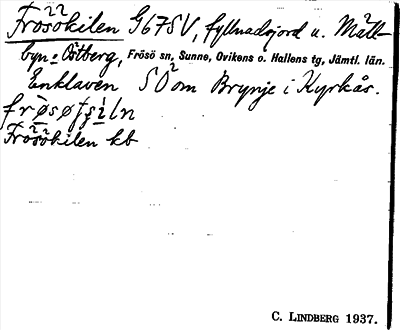 Frösökilen G67SV, fyllnadsjord u. Mäll-
byn o. Östberg, Frösö sn, Sunne, Ovikens o. Hallens tg, Jämtl. län.
Enklaven SO om Brynje i Kyrkås.
Frösökilen kb
C. LINDBERG 1937.